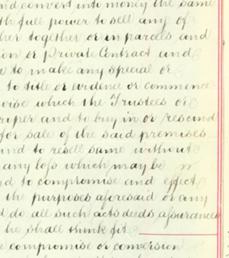 nd convert into money the same
th full power to sell any of
her together or in parcels and
ion or Private Contract and
e to make any special or
to title or evidence or commence
wise which the Trustees or
roper and to buy in or rescind
for sale of the said premises
and to resell same without
any loss which may be in
nd to compromise and effect
the purposes aforesaid or any
d do all such acts deeds assurances
he shall think fit
e compromise or conversion